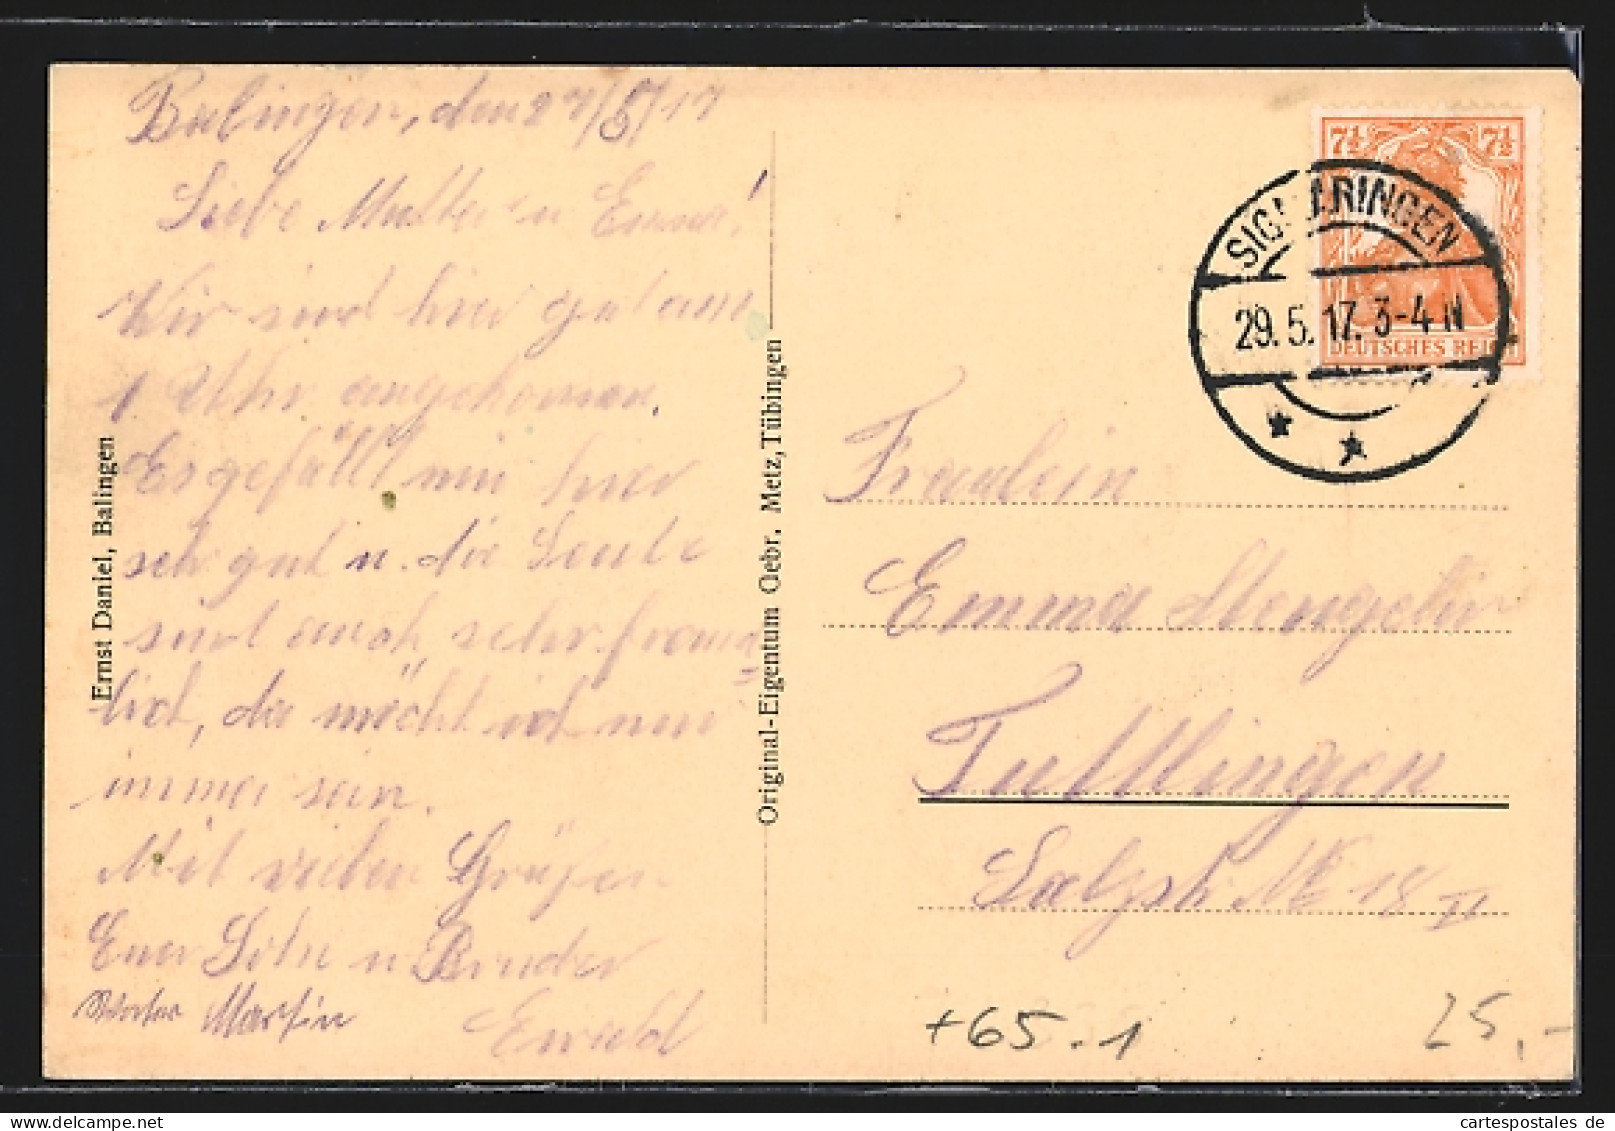 Balingen, den 27/5/17
Liebe Mutter u Emma!
Wir sind hier gut um
1 Uhr angekommen.
Es gefällt mir hier
sehr gut u. die Leute
sind auch sehr freund=
lich, da möcht ich nur
immer sein.
Mit vielen Grüßen
Euer Sohn u Bruder
Ewald
Martin
Ernst Daniel, Balingen
Original-Eigentum Gebr. Metz, Tübingen
7½ 7½
DEUTSCHES REICH
SIGMARINGEN
29.5.17. 3-4 N
Fräulein
Emma Stengelin
Tuttlingen
Salzstr. No 18 II
+65.1
25,-
cartespostales de